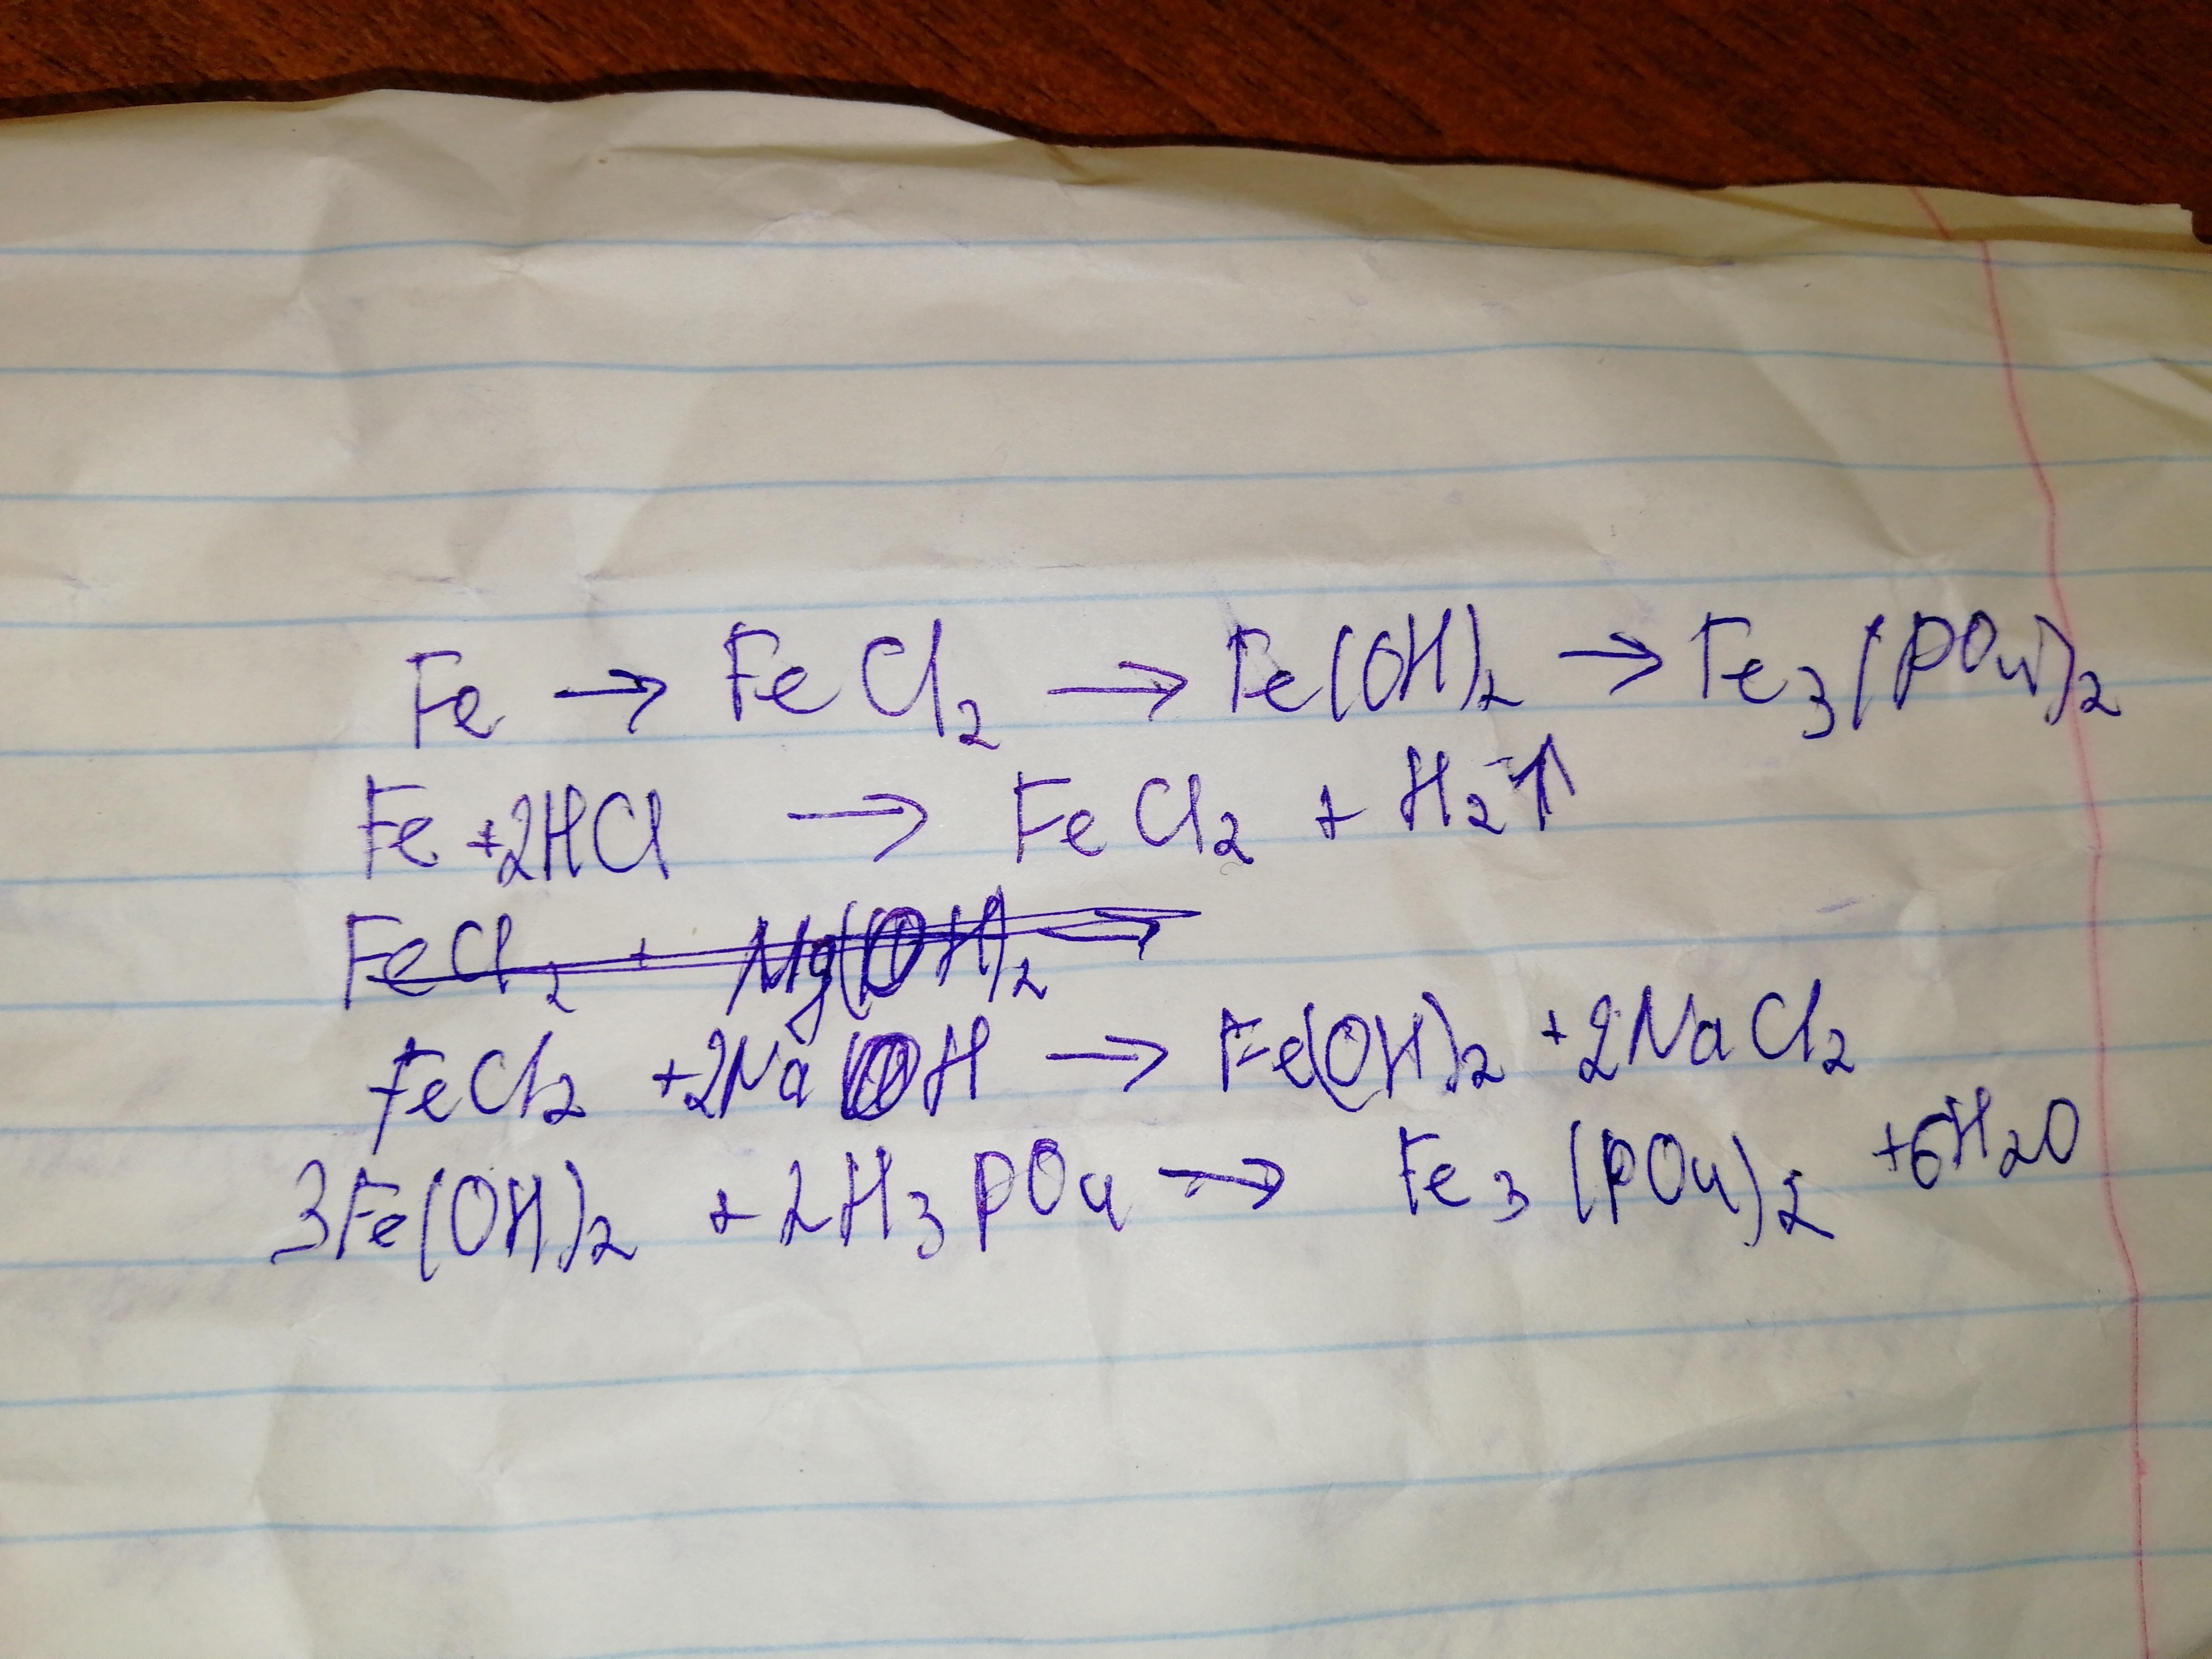 Fe → FeCl₂ → Fe(OH)₂ → Fe₃(PO₄)₂
Fe +2HCl → FeCl₂ + H₂↑
FeCl₂ + Mg(OH)₂ →
FeCl₂ +2NaOH → Fe(OH)₂ +2NaCl₂
3Fe(OH)₂ + 2H₃PO₄ → Fe₃(PO₄)₂ +6H₂O